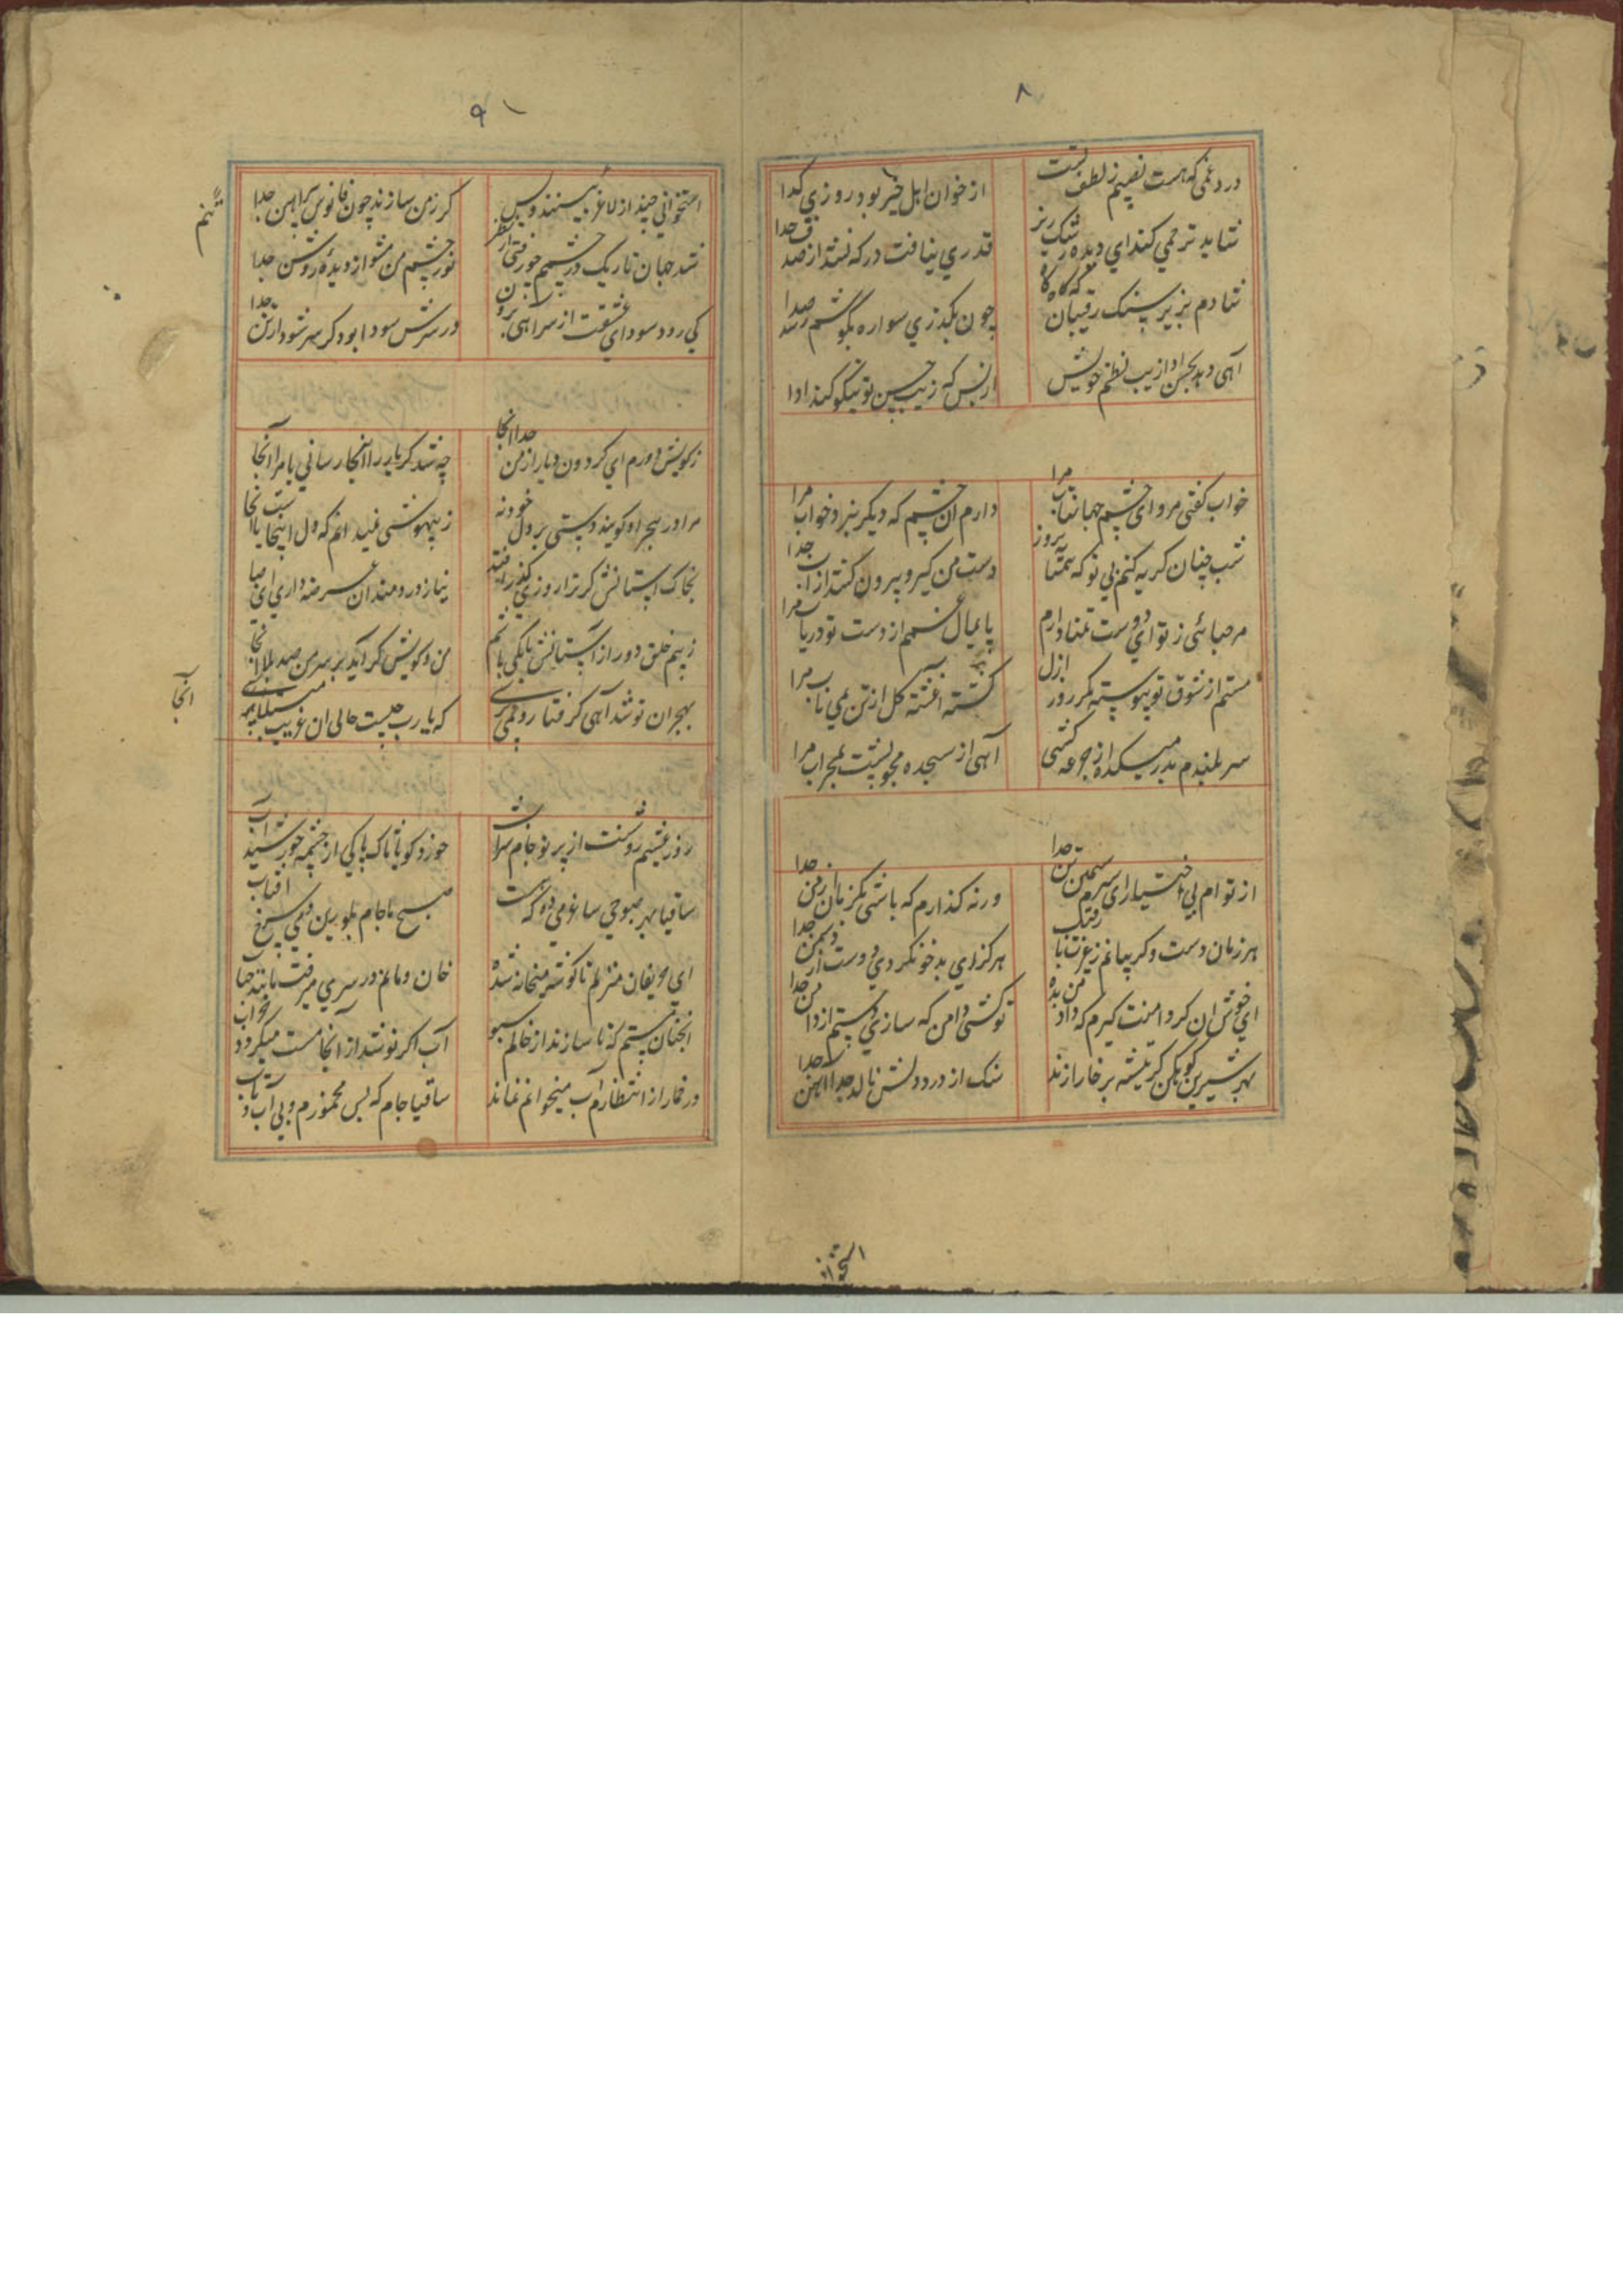 ۸
درد و غمی که هست نصیبم ز لطف تست
از خوان اهل خیر بود روزی کدا
شاید ترحمی کند ای دیده اشک ریز
قدری نیافت در که نشد از صدف جدا
شادم بزیر سنک رقیبان که کاه کاه
چون بکذری سواره بکوشم رسد صدا
آهی دهد بحسن ادا زیب نظم خویش
از بس که زیب حسن تو نیکو کند ادا
خواب کفتی مرو ای چشم جهانتاب مرا
دارم آن چشم که دیکر نبرد خواب مرا
شب چنان کریه کنم بی تو که
دست من کیر و بیرون کند از آب
مرحبائی ز تو ای دوست تمنا دارم
پایمال غمم از دست تو دریاب مرا
مستم از شوق تو پیوسته مکر روز ازل
کشته آغشته کل از تن بمی ناب مرا
سر بلندم بدر میکده از جرعه کشی
آهی از سجده مجو پشت بمحراب مرا
از تو ام بی اختیار ای سرو سیمین تن جدا
ورنه کذارم که باشی یکزمان از من جدا
هر زمان دست و کریبانم ز غیرت با رقیب
هرکز ای بدخو نکردی دوست از دشمن جدا
ای خوش آن کز دامنت کیرم که داد من بده
تو کشی دامن که سازی دستم از دامن جدا
بهر شیرین کوهکن کر تیشه بر خارا زند
سنک از درد دلش نالد جدا آهن جدا
۹
استخوانی چند از لاغر ببینند و بس
کر ز من سازند چون فانوس پیراهن جدا
شد جهان تاریک در چشمم چو رفتی از نظر
نور چشم من مشو از دیدهٔ روشن جدا
کی رود سودای عشقت از سر آهی برون
در سرش سودا بود کر سر شود از تن جدا
ز کویش دورم ای کردون و یار از من جدا آنجا
چه شد کر یار را اینجا رسانی یا مرا آنجا
مرا در هجر او کویند دستی بر دل خود نه
ز بیهوشی نمیدانم که دل اینجاست یا آنجا
بخاک آستانش کر ترا روزی کذر افتد
نیاز دردمندان عرضه داری ای صبا آنجا
ز بیم خلق دور از آستانش
من و کویش کر آید بر سر من صد بلا آنجا
بهجران تو شد آهی کرفتار و نمی پرسی
که یا رب چیست حال آن غریب مبتلا آنجا
روز عیشم روشنست از پرتو جام شراب
ساقیا بهر صبوحی ساغر می ده که هست
صبح ما جام بلورین و می سرخ آفتاب
ای حریفان منزلم تا کوشه میخانه شد
خان و مانم در سر می رفت مانند حباب
آنچنان مستم که تا سازند از خاکم سبو
آب اکر نوشد از آنجا مست میکردد
در خمار از انتظارم آب میخوانم نماند
ساقیا جام که بس مخمورم و بی آب و تاب
آنجا